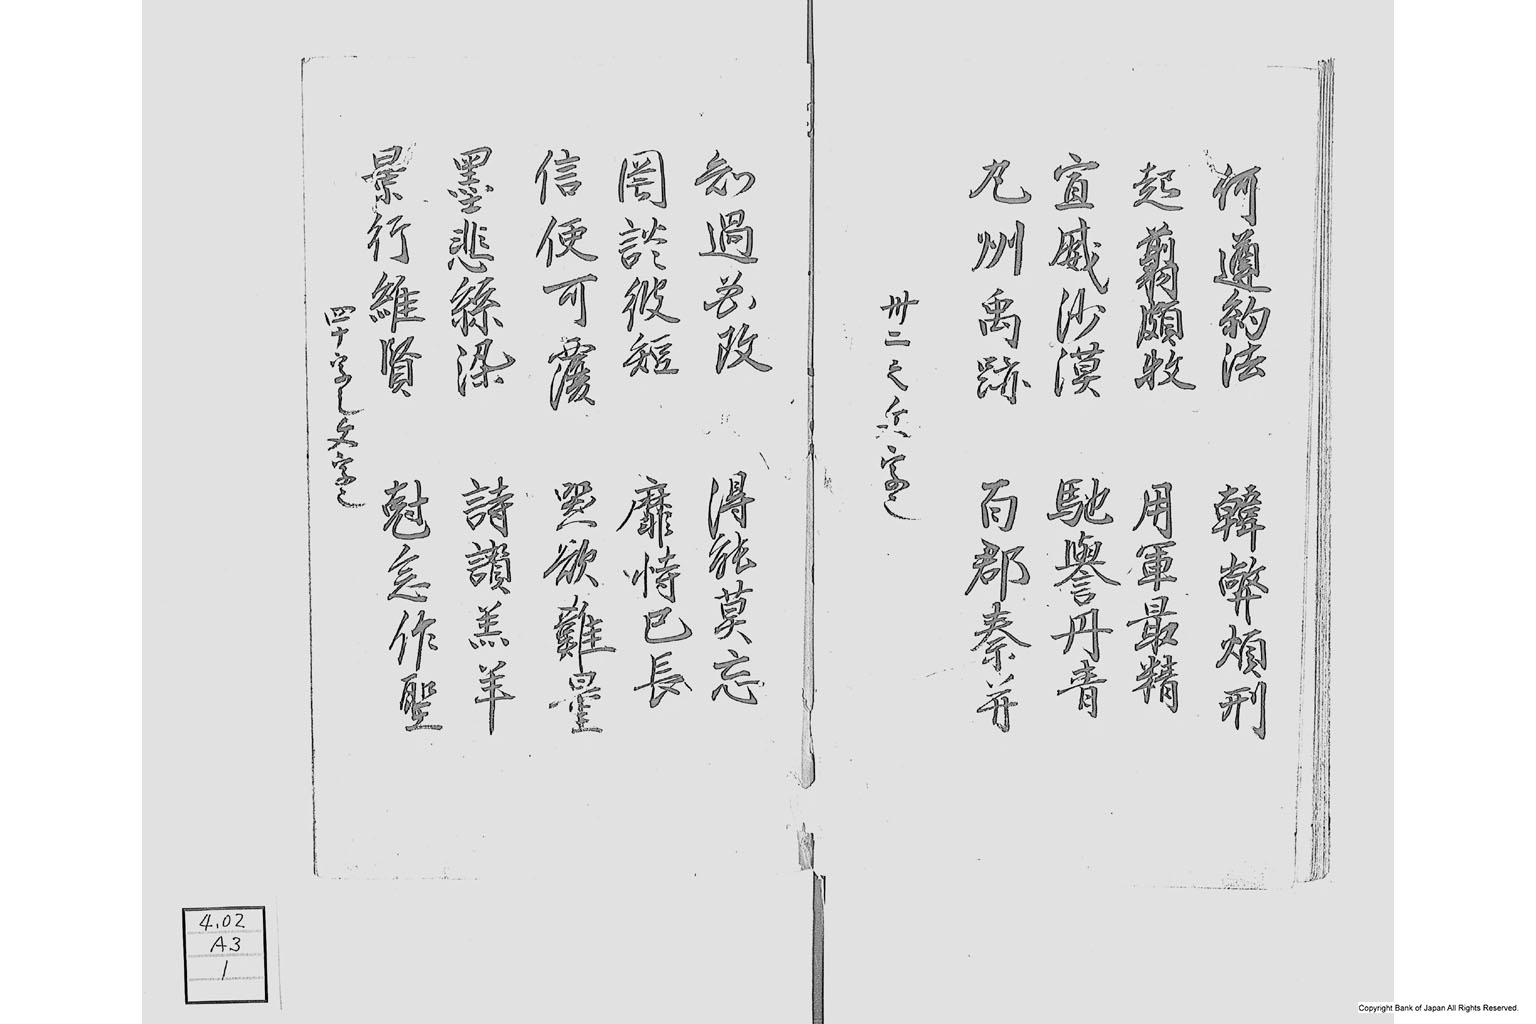 何遵約法 韓弊煩刑
起翦頗牧 用軍最精
宣威沙漠 馳譽丹青
九州禹跡 百郡秦并
卅二之
字之
知過必改 得能莫忘
罔談彼短 靡恃已長
信使可覆 器欲難量
墨悲絲染 詩讃羔羊
景行維賢 尅念作聖
四十字
文字之
4.02
A3
1
Copyright Bank of Japan All Rights Reserved.